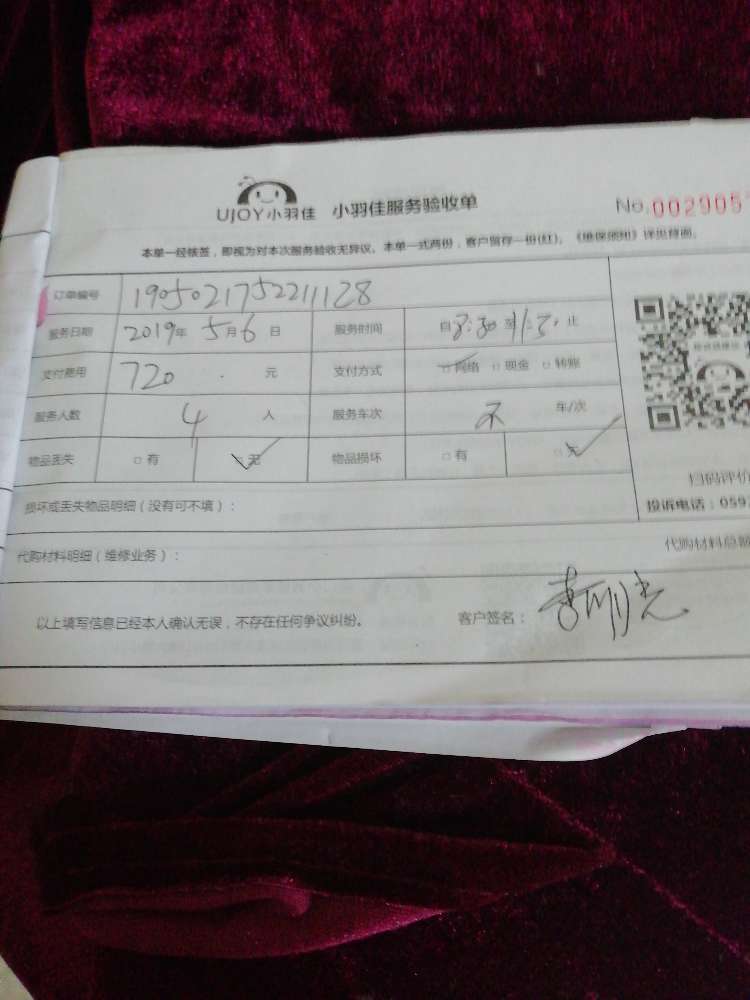 UJOY小羽佳 小羽佳服务验收单 No.002905
本单一经帐签，即视为对本次服务验收无异议。本单一式两份，客户留存一份(红)。《维保须知》详见背面。
订单编号 1905021752211128
服务日期 2019年5月6日 服务时间 自8:30至11:30止
支付费用 720.元 支付方式 □网络 □现金 □转账
服务人数 4人 服务车次 不 车/次
物品丢失 □有 □无 物品损坏 □有 □无
扫码评价
损坏或丢失物品明细（没有可不填）： 投诉电话：059
代购材料明细（维修业务）： 代购材料总额
以上填写信息已经本人确认无误，不存在任何争议纠纷。 客户签名：